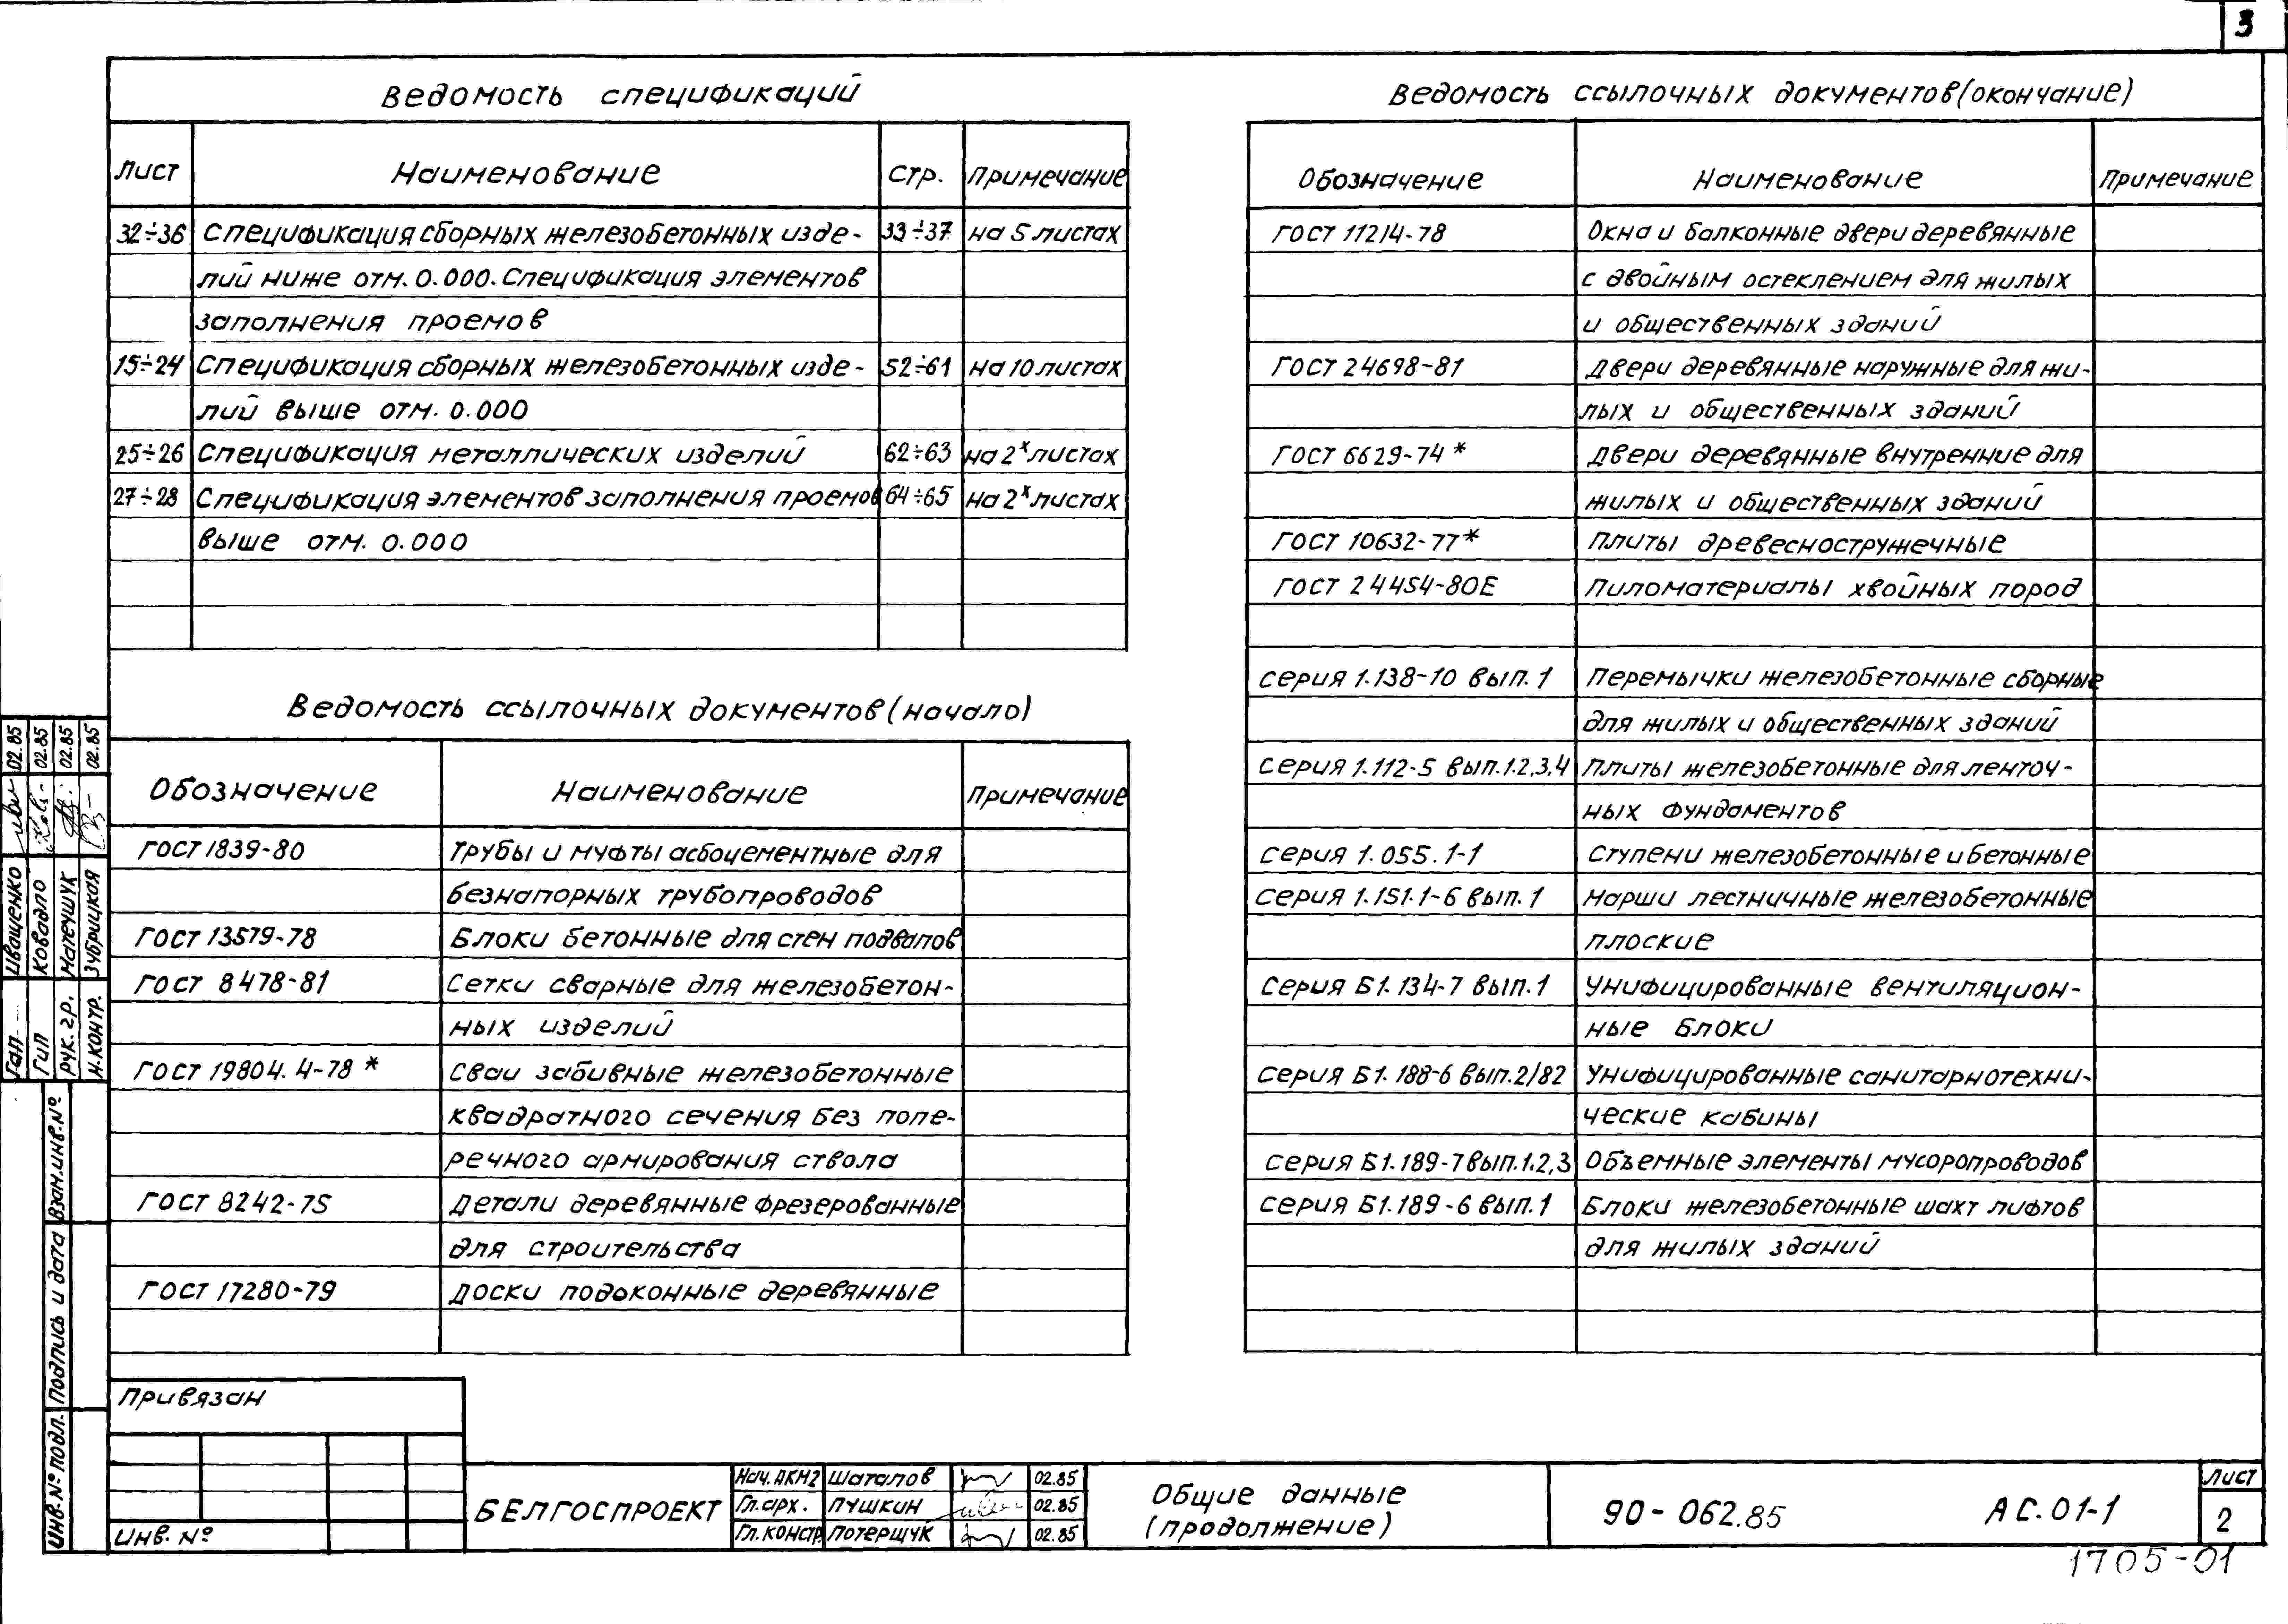 3
Ведомость спецификаций
Лист Наименование Стр. Примечание
32÷36 Спецификация сборных железобетонных изде- 33÷37 на 5 листах
лий ниже отм. 0.000. Спецификация элементов
заполнения проемов
15÷24 Спецификация сборных железобетонных изде- 52÷61 на 10 листах
лий выше отм. 0.000
25÷26 Спецификация металлических изделий 62÷63 на 2х листах
27÷28 Спецификация элементов заполнения проемов 64÷65 на 2х листах
выше отм. 0.000
Ведомость ссылочных документов (начало)
Обозначение Наименование Примечание
ГОСТ 1839-80 Трубы и муфты асбоцементные для
безнапорных трубопроводов
ГОСТ 13579-78 Блоки бетонные для стен подвалов
ГОСТ 8478-81 Сетки сварные для железобетон-
ных изделий
ГОСТ 19804.4-78 * Сваи забивные железобетонные
квадратного сечения без попе-
речного армирования ствола
ГОСТ 8242-75 Детали деревянные фрезерованные
для строительства
ГОСТ 17280-79 Доски подоконные деревянные
Ведомость ссылочных документов (окончание)
Обозначение Наименование Примечание
ГОСТ 11214-78 Окна и балконные двери деревянные
с двойным остеклением для жилых
и общественных зданий
ГОСТ 24698-81 Двери деревянные наружные для жи-
лых и общественных зданий
ГОСТ 6629-74 * Двери деревянные внутренние для
жилых и общественных зданий
ГОСТ 10632-77* Плиты древесностружечные
ГОСТ 24454-80Е Пиломатериалы хвойных пород
серия 1.138-10 вып. 1 Перемычки железобетонные сборные
для жилых и общественных зданий
серия 1.112-5 вып.1.2,3,4 Плиты железобетонные для ленточ-
ных фундаментов
серия 1.055.1-1 Ступени железобетонные и бетонные
серия 1.151.1-6 вып. 1 Марши лестничные железобетонные
плоские
серия Б1.134-7 вып.1 Унифицированные вентиляцион-
ные блоки
серия Б1.188-6 вып.2/82 Унифицированные санитарнотехни-
ческие кабины
серия Б1.189-7 вып.1.2,3 Объемные элементы мусоропроводов
серия Б1.189-6 вып.1 Блоки железобетонные шахт лифтов
для жилых зданий
Гап Иващенко 02.85
Гип Ковадло 02.85
Рук. гр. Матечук 02.85
Н.контр. Зубрицкая 02.85
Взам.инв.№
Подпись и дата
Инв.№ подл.
Привязан
Инв. №
БЕЛГОСПРОЕКТ
Нач. АКМ2 Шаталов 02.85
Гл.арх. Пушкин 02.85
Гл. констр. Потерщук 02.85
Общие данные
(продолжение)
90-062.85 АС.01-1
Лист
2
1705-01